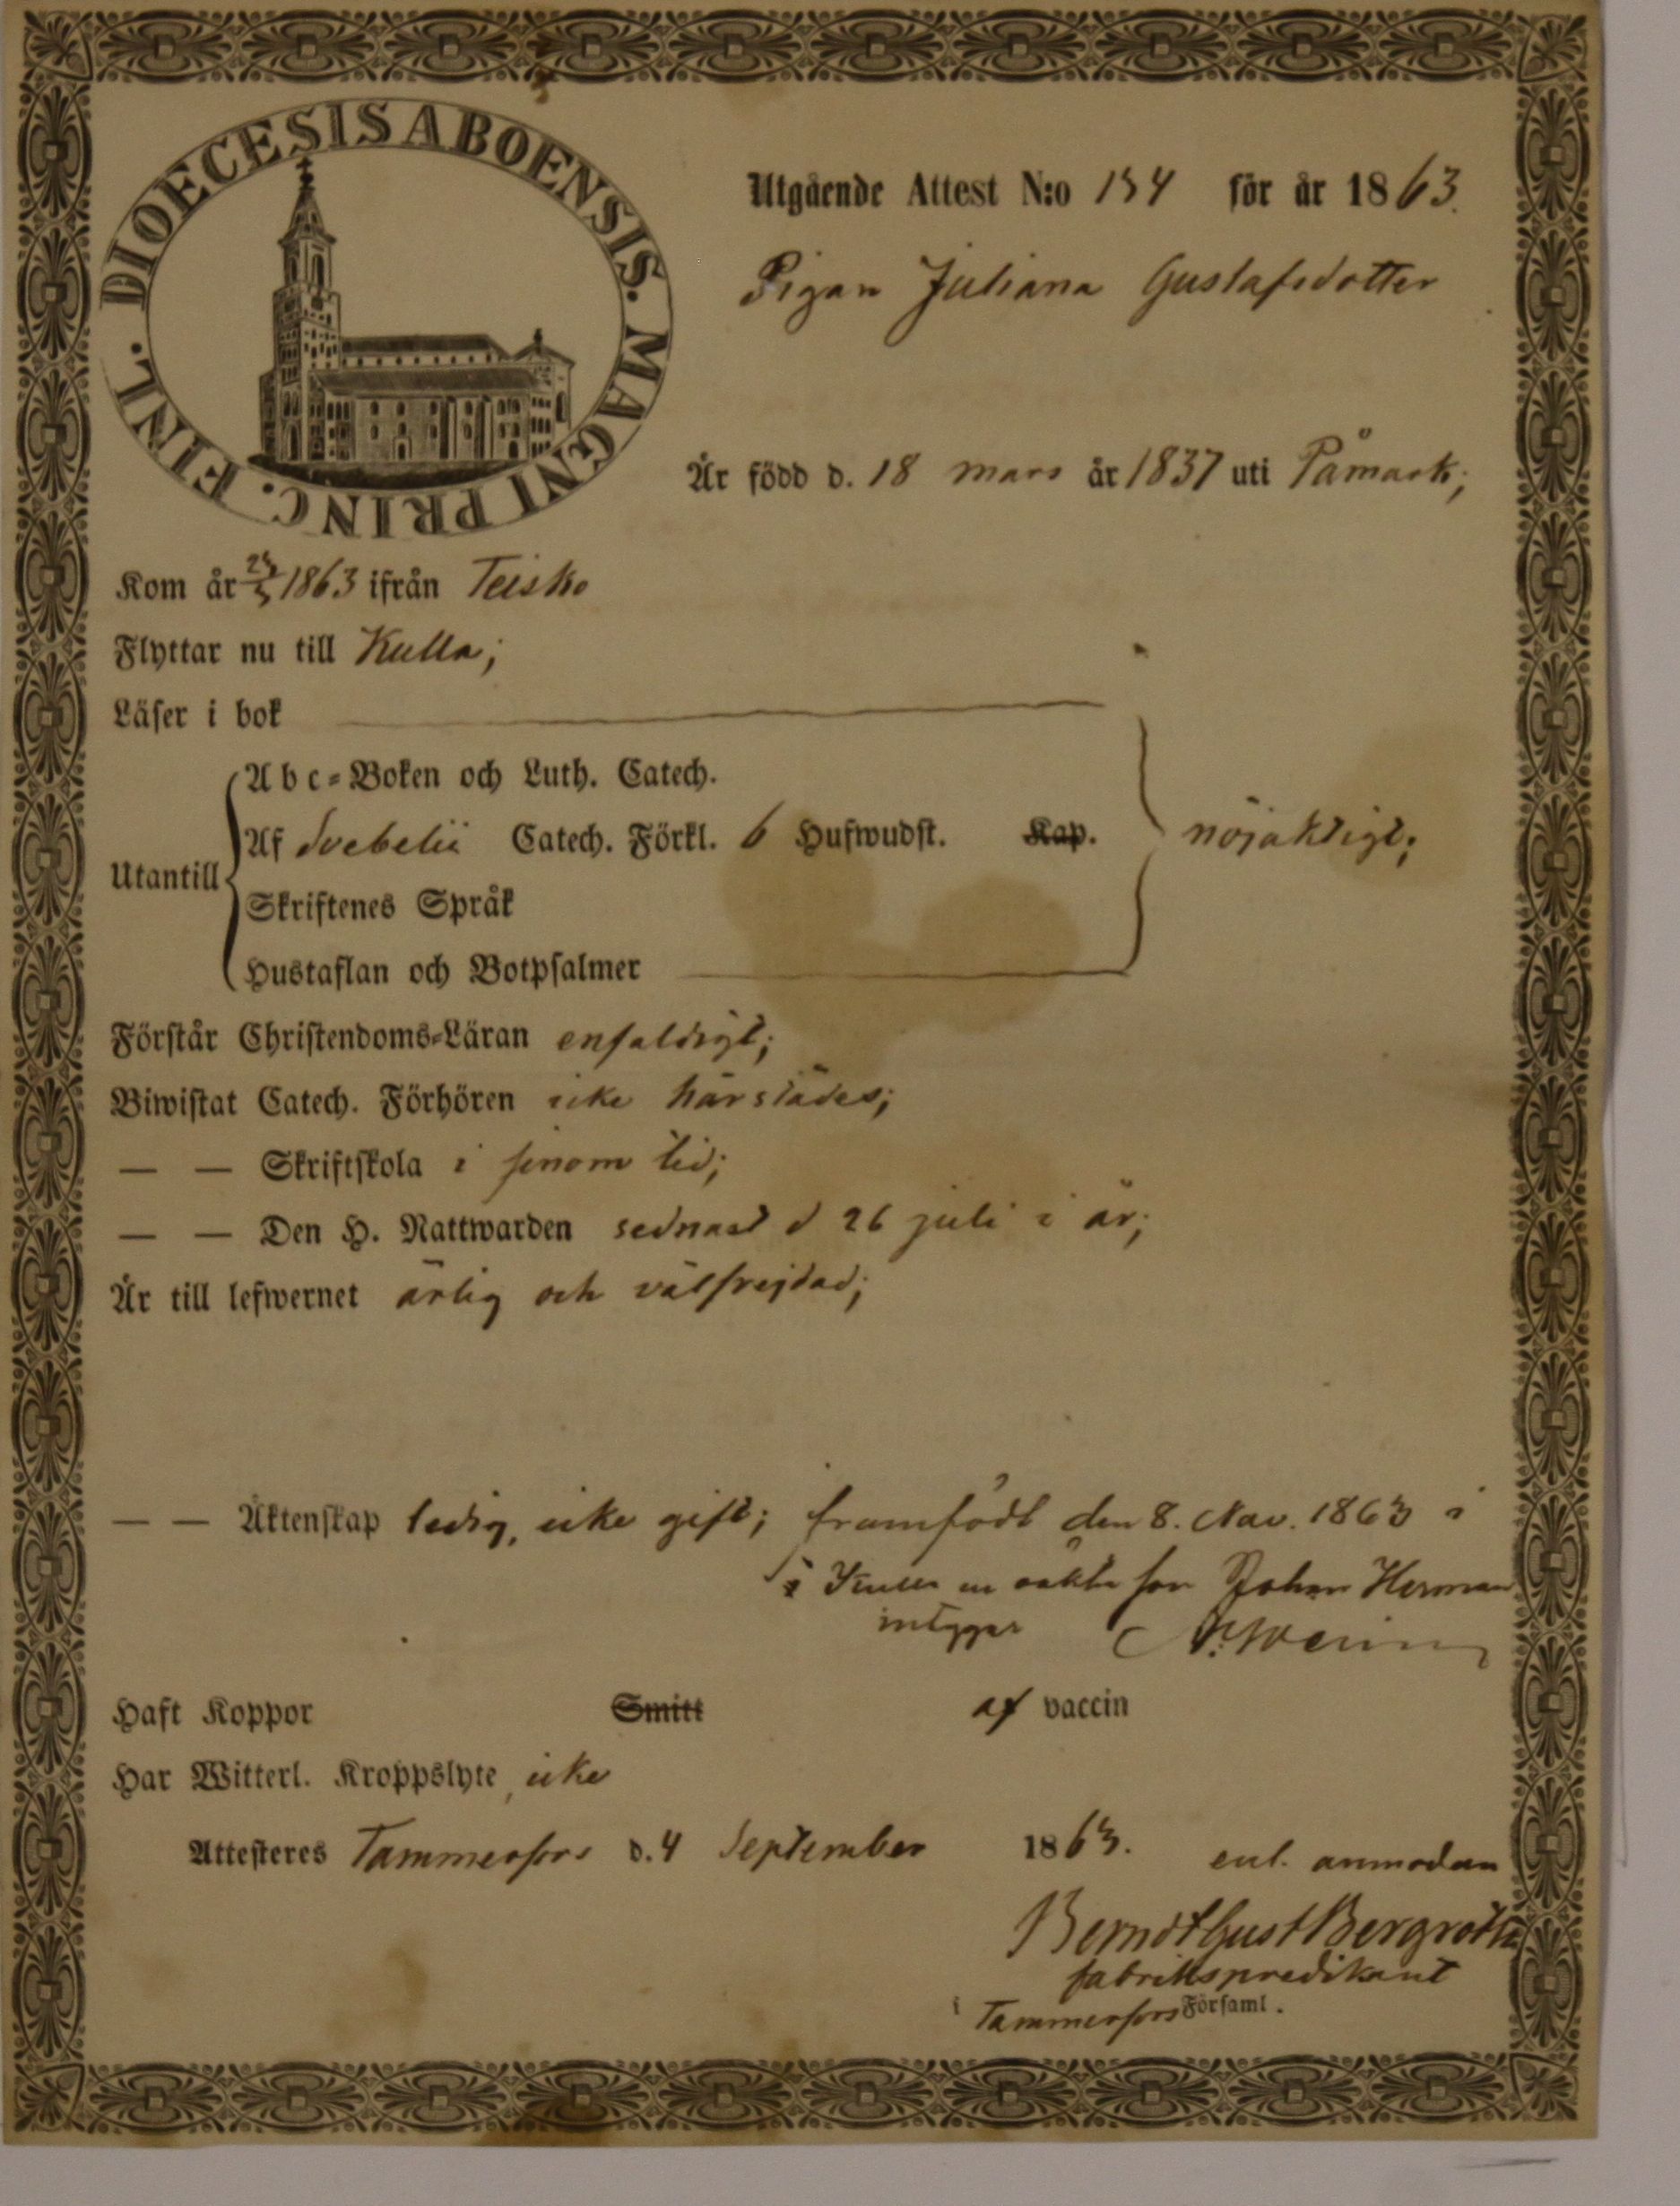 DIOECESIS ABOENSIS. MAGNI PRINC. FINL.
Utgående Attest N:o 134 för år 1863.
Pigan Juliana Gustafsdotter
Är född d. 18 mars år 1837 uti Påmark;
Kom år 1863 ifrån Teisko
Flyttar nu till Kulla;
Läser i bok
Abc-Boken och Luth. Catech.
Af Svebelii Catech. Förkl. 6 Hufwudst. Kap. nöjaktigt;
Utantill
Skriftenes Språk
Hustaflan och Botpsalmer
Förstår Christendoms-Läran enfaldigt;
Biwistat Catech. Förhören icke härstädes;
— — Skriftskola i sinom tid;
— — Den H. Nattwarden sednast d 26 juli i år;
Är till lefwernet ärlig och välfrejdad;
— — Äktenskap ledig, icke gift; framfödt den 8. Nov. 1863 i
i oäkta son Johan Herman
intygar
Haft Koppor Smitt af vaccin
Har Witterl. Kroppslyte, icke
Attesteres Tammerfors d. 4 September 1863. enl. anmodan
Berndt Gust Bergroth
fabrikspredikant
i Tammerfors Församl.